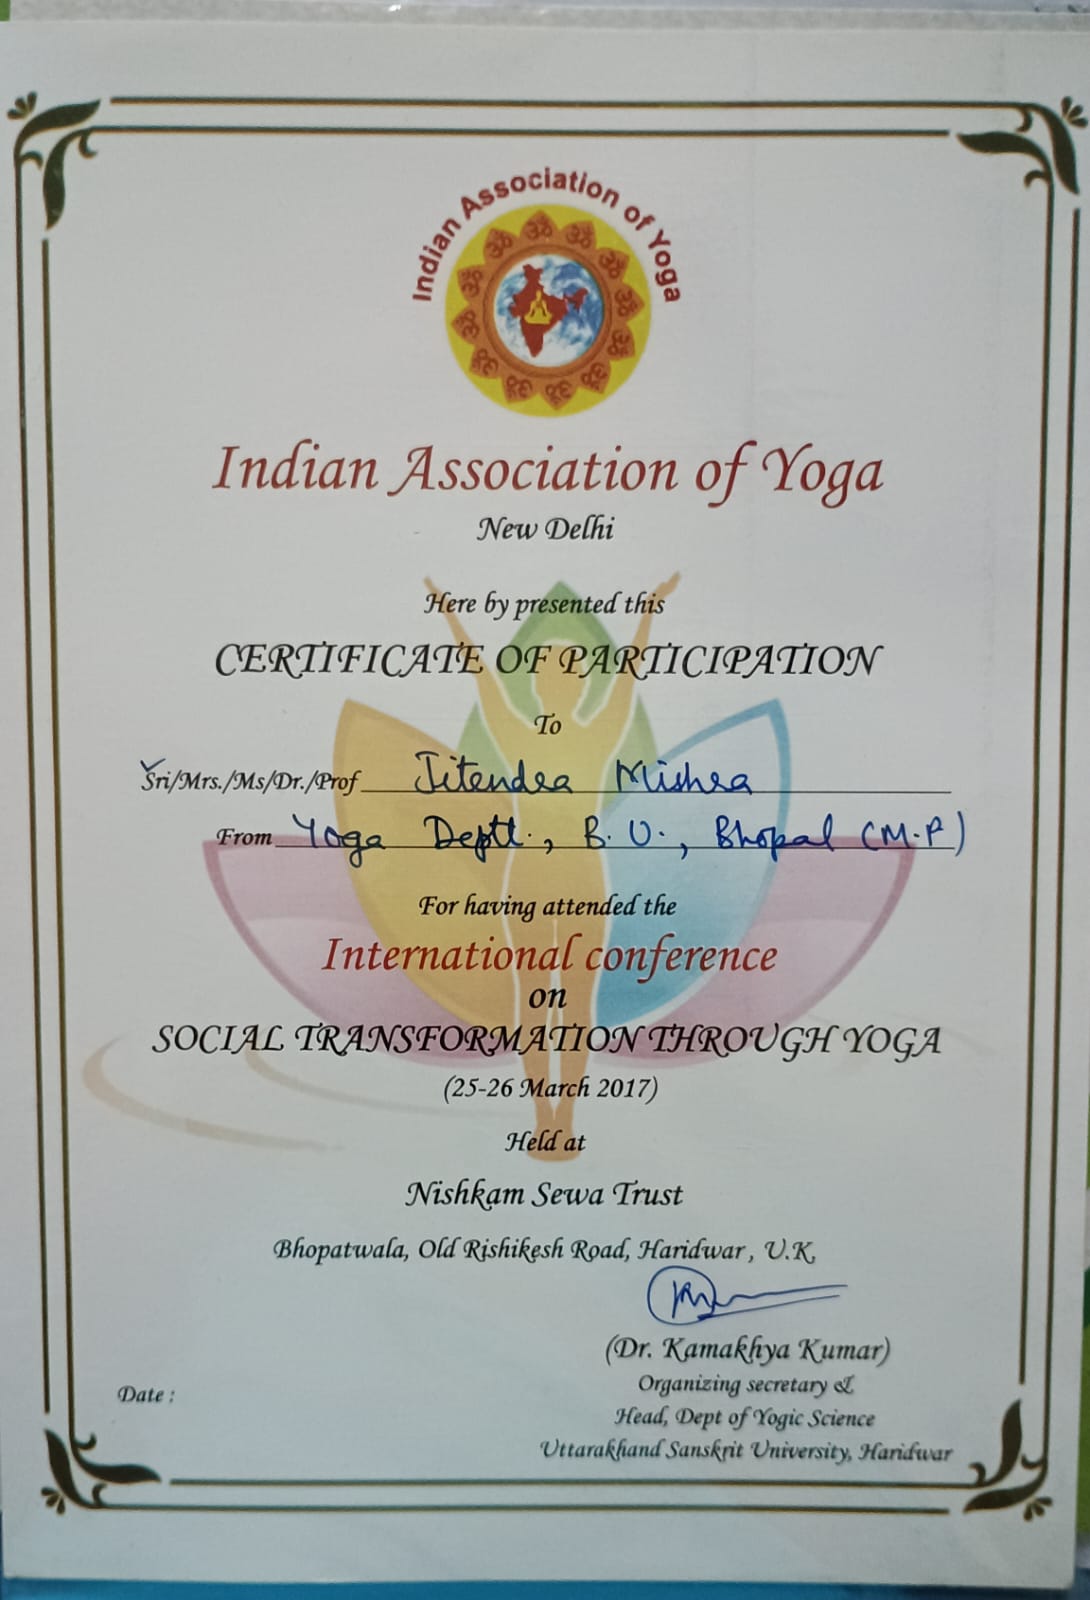 Indian Association of Yoga
Indian Association of Yoga
New Delhi
Here by presented this
CERTIFICATE OF PARTICIPATION
To
Sri/Mrs./Ms/Dr./Prof Jitendra Mishra
From Yoga Deptt., B.U., Bhopal (M.P)
For having attended the
International conference
on
SOCIAL TRANSFORMATION THROUGH YOGA
(25-26 March 2017)
Held at
Nishkam Sewa Trust
Bhopatwala, Old Rishikesh Road, Haridwar, U.K,
(Dr. Kamakhya Kumar)
Organizing secretary &
Head, Dept of Yogic Science
Uttarakhand Sanskrit University, Haridwar
Date :